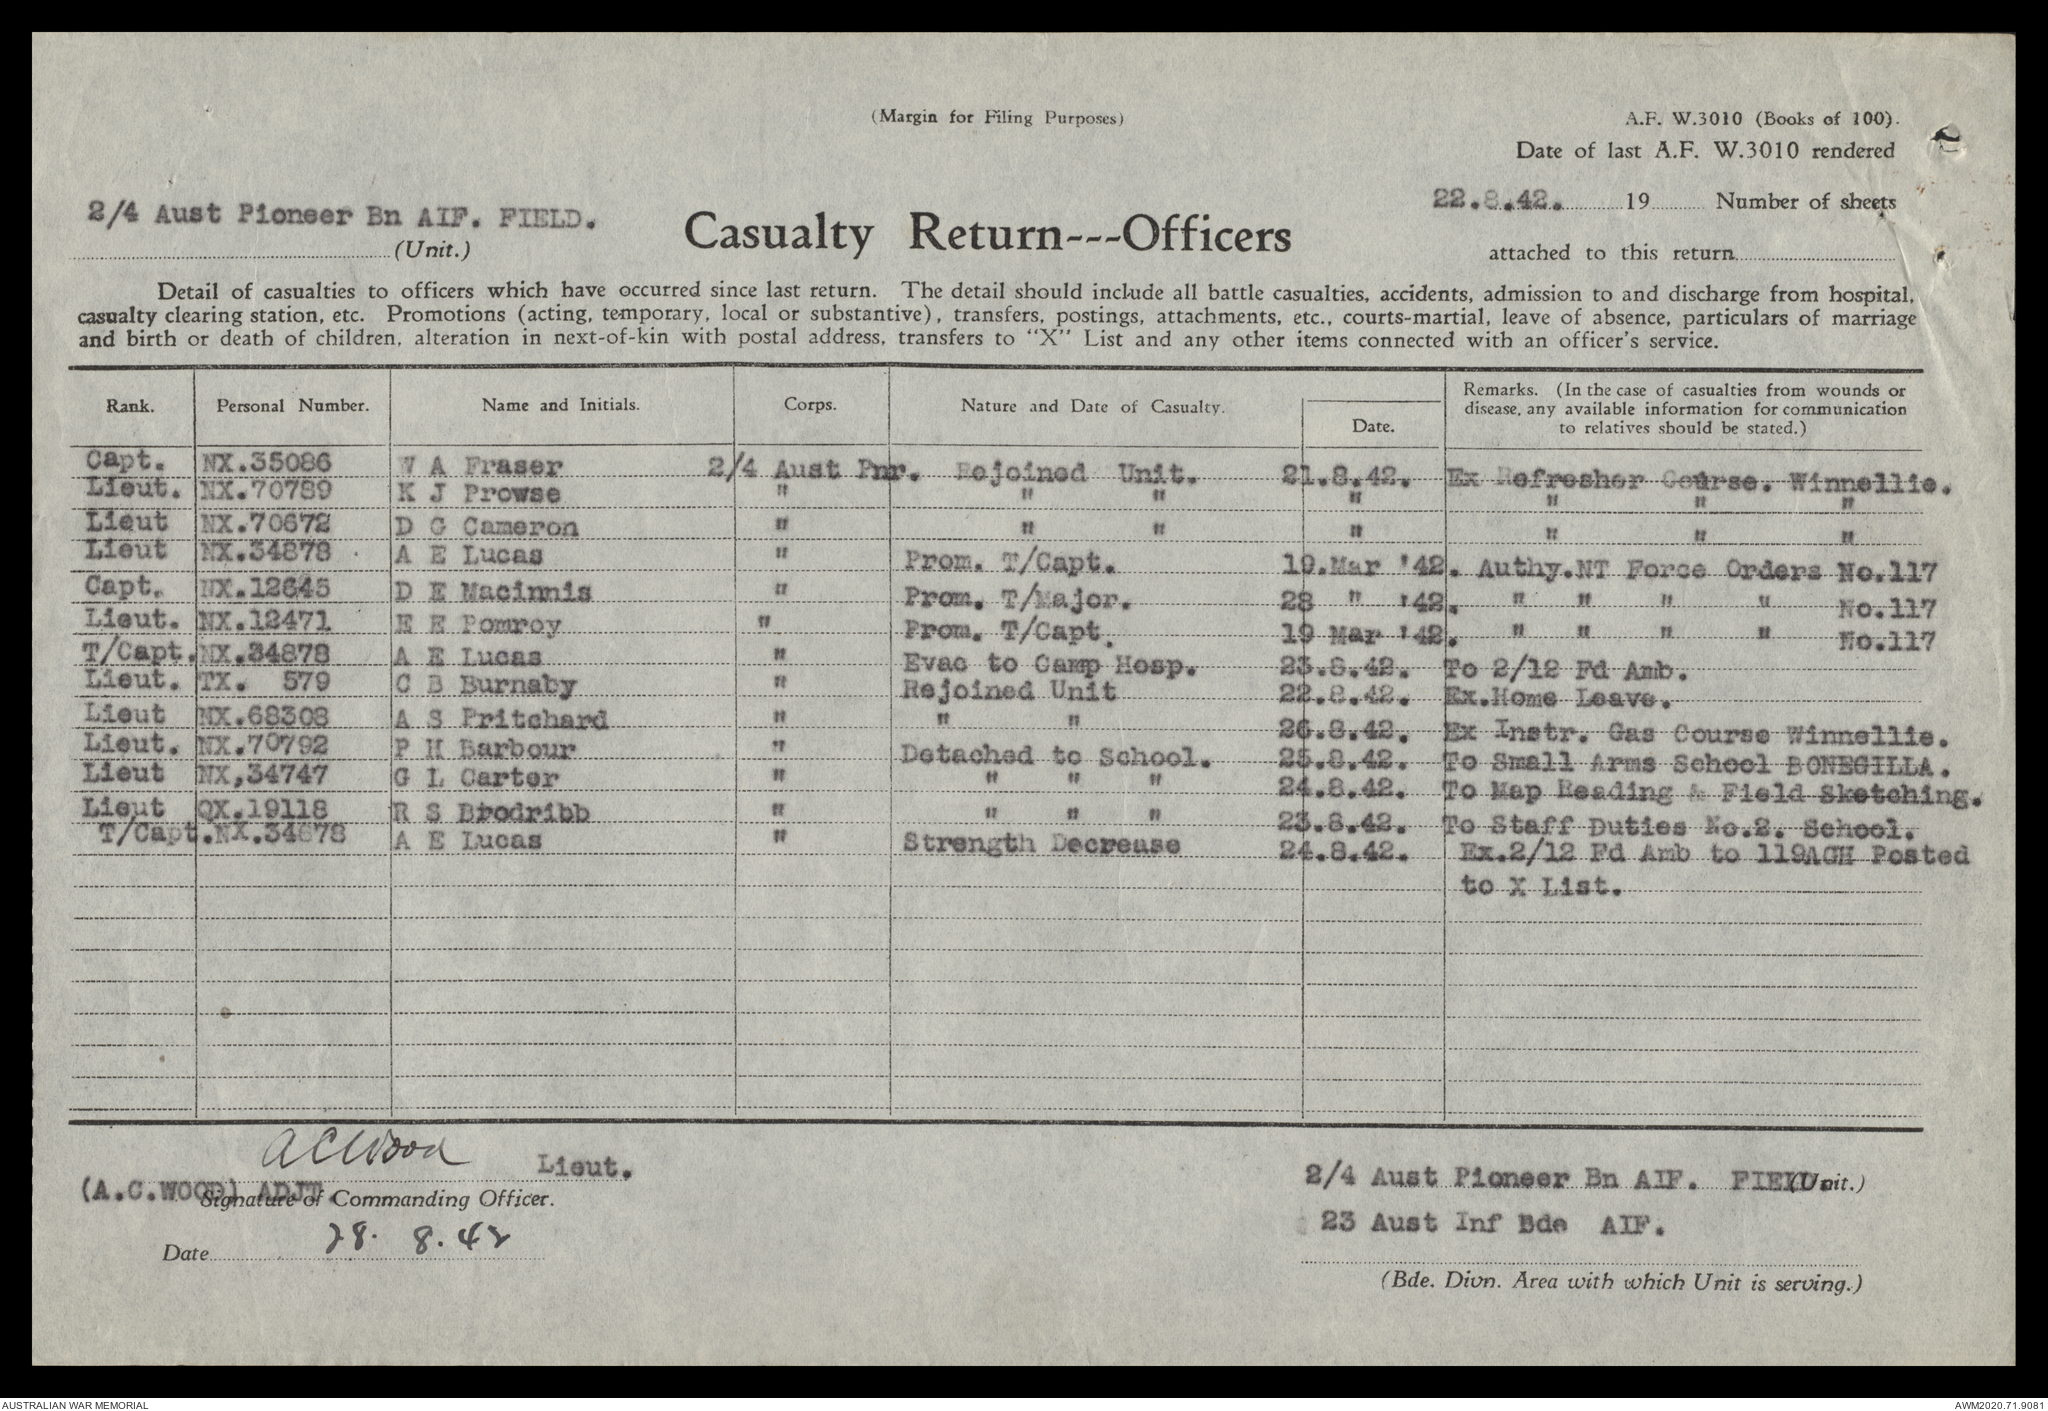 (Margin for Filing Purposes)
A.F. W.3010 (Books of 100).
Date of last A.F. W.3010 rendered
22.8.42. 19 Number of sheets
attached to this return
2/4 Aust Pioneer Bn AIF. FIELD.
(Unit.)
Casualty Return---Officers
Detail of casualties to officers which have occurred since last return. The detail should include all battle casualties, accidents, admission to and discharge from hospital,
casualty clearing station, etc. Promotions (acting, temporary, local or substantive), transfers, postings, attachments, etc., courts-martial, leave of absence, particulars of marriage
and birth or death of children, alteration in next-of-kin with postal address, transfers to "X" List and any other items connected with an officer's service.
Rank. Personal Number. Name and Initials. Corps. Nature and Date of Casualty. Date. Remarks. (In the case of casualties from wounds or
disease, any available information for communication
to relatives should be stated.)
Capt. NX.35086 W A Fraser 2/4 Aust Pnr. Rejoined Unit. 21.8.42. Ex Refresher Course. Winnellie.
Lieut. NX.70789 K J Prowse " " " " " " "
Lieut NX.70672 D G Cameron " " " " " " "
Lieut NX.34878 A E Lucas " Prom. T/Capt. 19.Mar '42. Authy.NT Force Orders No.117
Capt. NX.12645 D E Macinnis " Prom. T/Major. 28 " '42. " " " " No.117
Lieut. NX.12471 E E Pomroy " Prom. T/Capt. 19 Mar '42. " " " " No.117
T/Capt. NX.34878 A E Lucas " Evac to Camp Hosp. 23.8.42. To 2/12 Fd Amb.
Lieut. TX. 579 C B Burnaby " Rejoined Unit 22.8.42. Ex.Home Leave.
Lieut NX.68308 A S Pritchard " " " 26.8.42. Ex Instr. Gas Course Winnellie.
Lieut. NX.70792 P H Barbour " Detached to School. 25.8.42. To Small Arms School BONEGILLA.
Lieut NX,34747 G L Carter " " " " 24.8.42. To Map Reading & Field Sketching.
Lieut QX.19118 R S Brodribb " " " " 23.8.42. To Staff Duties No.2. School.
T/Capt.NX.34878 A E Lucas " Strength Decrease 24.8.42. Ex.2/12 Fd Amb to 119AGH Posted
to X List.
ACWood Lieut.
(A.C.WOOD) ADJT.
Signature of Commanding Officer.
Date 28. 8. 42
2/4 Aust Pioneer Bn AIF. FIELD. (Unit.)
23 Aust Inf Bde AIF.
(Bde. Divn. Area with which Unit is serving.)
AUSTRALIAN WAR MEMORIAL
AWM2020.71.9081